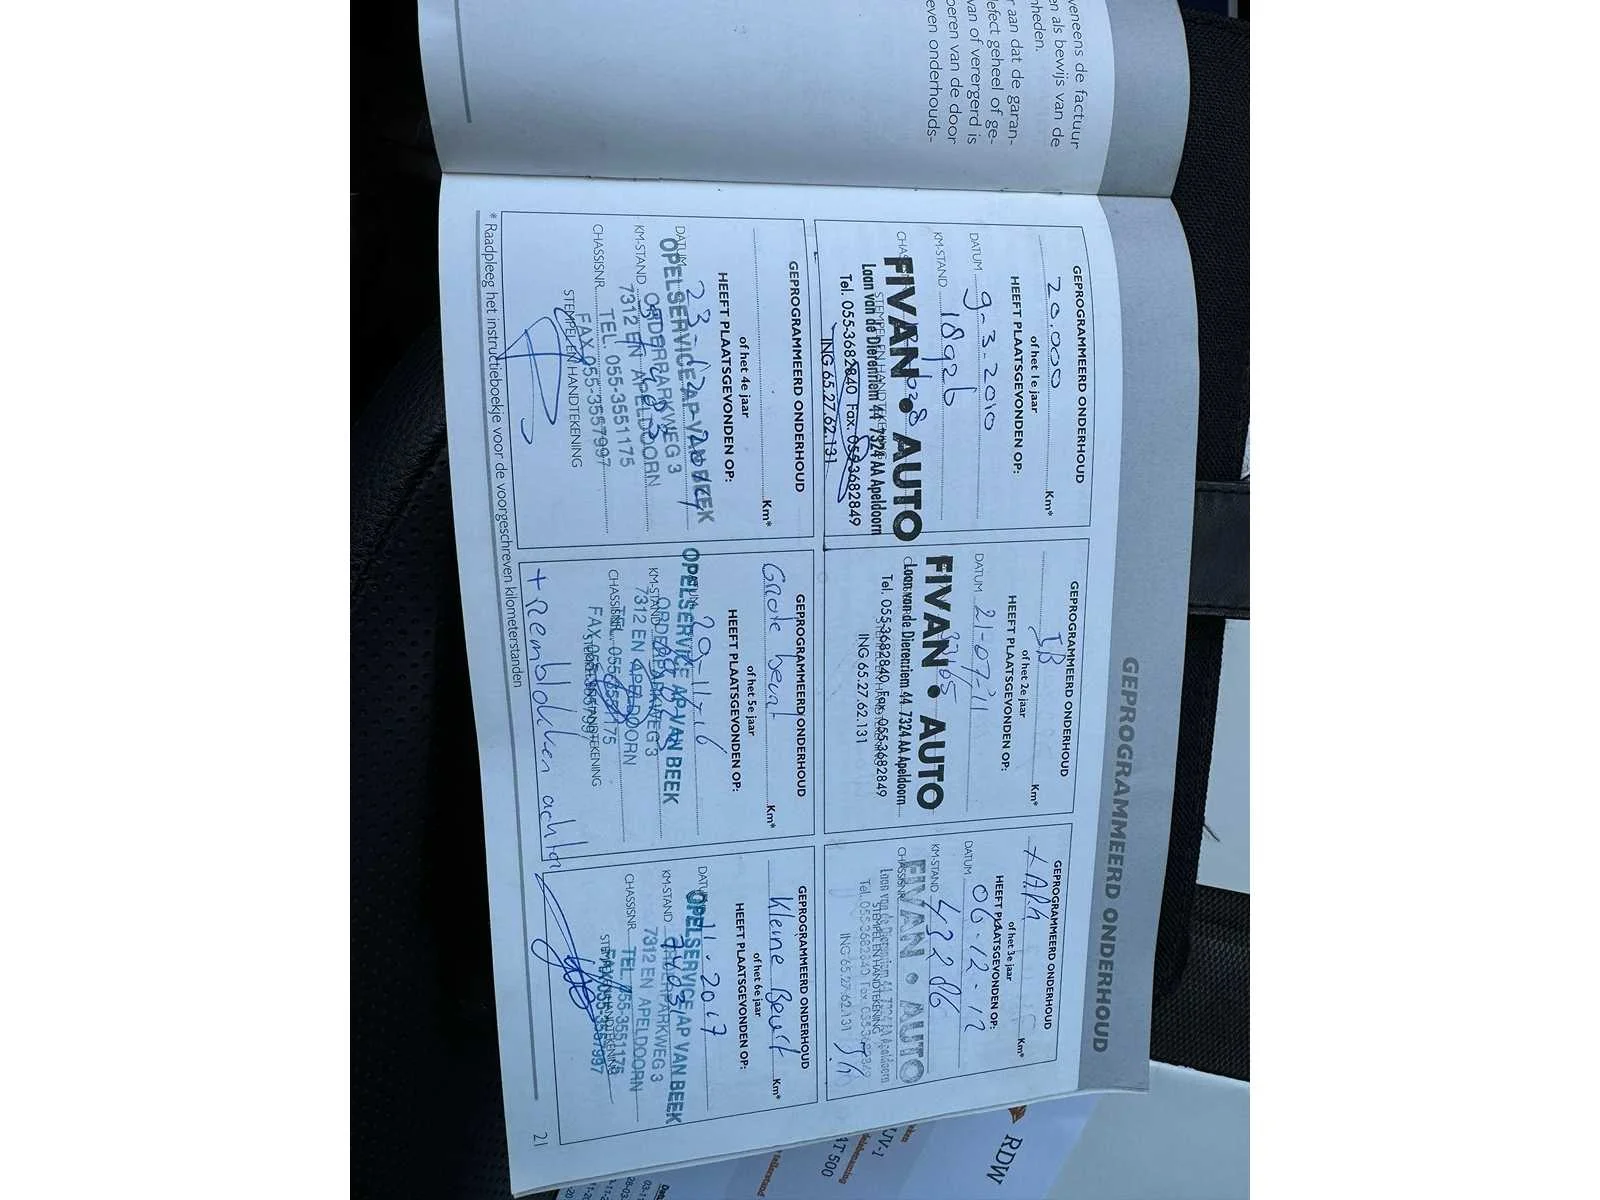 veneens de factuur
en als bewijs van de
nheden.
r aan dat de garan-
defect geheel of ge-
van of verergerd is
oeren van de door
even onderhouds-
GEPROGRAMMEERD ONDERHOUD
GEPROGRAMMEERD ONDERHOUD
20.000 Km*
of het 1e jaar
HEEFT PLAATSGEVONDEN OP:
DATUM 9-3-2010
KM-STAND 18926
FIVAN • AUTO
Laan van de Dierenriem 44 7324 AA Apeldoorn
STEMPEL EN HANDTEKENING
Tel. 055-3682840 Fax. 055-3682849
ING 65.27.62.131
GEPROGRAMMEERD ONDERHOUD
Km*
of het 2e jaar
HEEFT PLAATSGEVONDEN OP:
DATUM 21-07-11
FIVAN • AUTO
Laan van de Dierenriem 44 7324 AA Apeldoorn
Tel. 055-3682840 Fax. 055-3682849
ING 65.27.62.131
GEPROGRAMMEERD ONDERHOUD
+ APK Km*
of het 3e jaar
HEEFT PLAATSGEVONDEN OP:
DATUM 06-12-12
KM-STAND 43286
CHASSISNR.
FIVAN • AUTO
Laan van de Dierenriem 44 7324 AA Apeldoorn
STEMPEL EN HANDTEKENING
Tel. 055-3682840 Fax. 055-3682849
ING 65.27.62.131
GEPROGRAMMEERD ONDERHOUD
Km*
of het 4e jaar
HEEFT PLAATSGEVONDEN OP:
DATUM
OPELSERVICE AP VAN BEEK
KM-STAND
ORDERPARKWEG 3
7312 EN APELDOORN
CHASSISNR.
TEL. 055-3551175
FAX 055-3557997
STEMPEL EN HANDTEKENING
GEPROGRAMMEERD ONDERHOUD
Grote beurt Km*
of het 5e jaar
HEEFT PLAATSGEVONDEN OP:
29-11-16
OPELSERVICE AP VAN BEEK
KM-STAND
ORDERPARKWEG 3
7312 EN APELDOORN
CHASSISNR.
TEL. 055-3551175
FAX 055-3557997
STEMPEL EN HANDTEKENING
+ Remblokken achter
GEPROGRAMMEERD ONDERHOUD
Kleine Beurt Km*
of het 6e jaar
HEEFT PLAATSGEVONDEN OP:
DATUM 11.2017
OPELSERVICE AP VAN BEEK
KM-STAND
ORDERPARKWEG 3
7312 EN APELDOORN
CHASSISNR.
TEL. 055-3551175
FAX 055-3557997
STEMPEL EN HANDTEKENING
* Raadpleeg het instructieboekje voor de voorgeschreven kilometerstanden
21
RDW